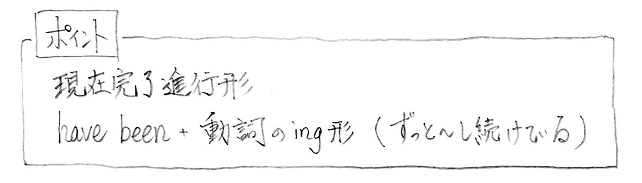 ポイント
現在完了進行形
have been + 動詞のing形 (ずっと～し続けている)